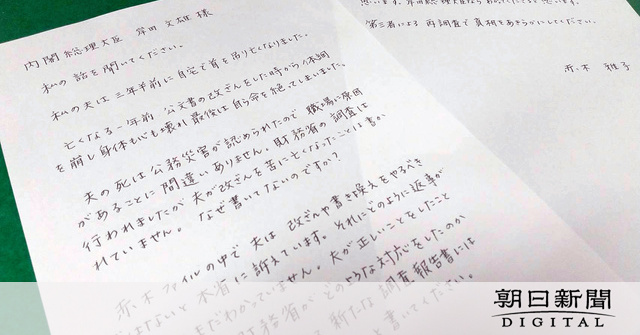 内閣総理大臣 岸田文雄様
私の話を聞いてください。
私の夫は三年半前に自宅で首を吊り亡くなりました。
亡くなる一年前、公文書の改ざんをした時から体調
を崩し身体も心も壊れ最後は自ら命を絶ってしまいました。
夫の死は公務災害が認められたので職場に原因
があることに間違いありません。財務省の調査は
行われましたが夫が改ざんを苦に亡くなったことは書か
れていません。なぜ書いてないのですか?
赤木ファイルの中で夫は改ざんや書き換えをやるべき
ではないと本省に訴えています。それにどのように返事が
まだわかっていません。夫が正しいことをしたこと
財務省がどのような対応をしたのか
新たな調査報告書には
書いてください。
第三者による再調査で真相をあきらかにしてください。
赤木 雅子
朝日新聞
DIGITAL